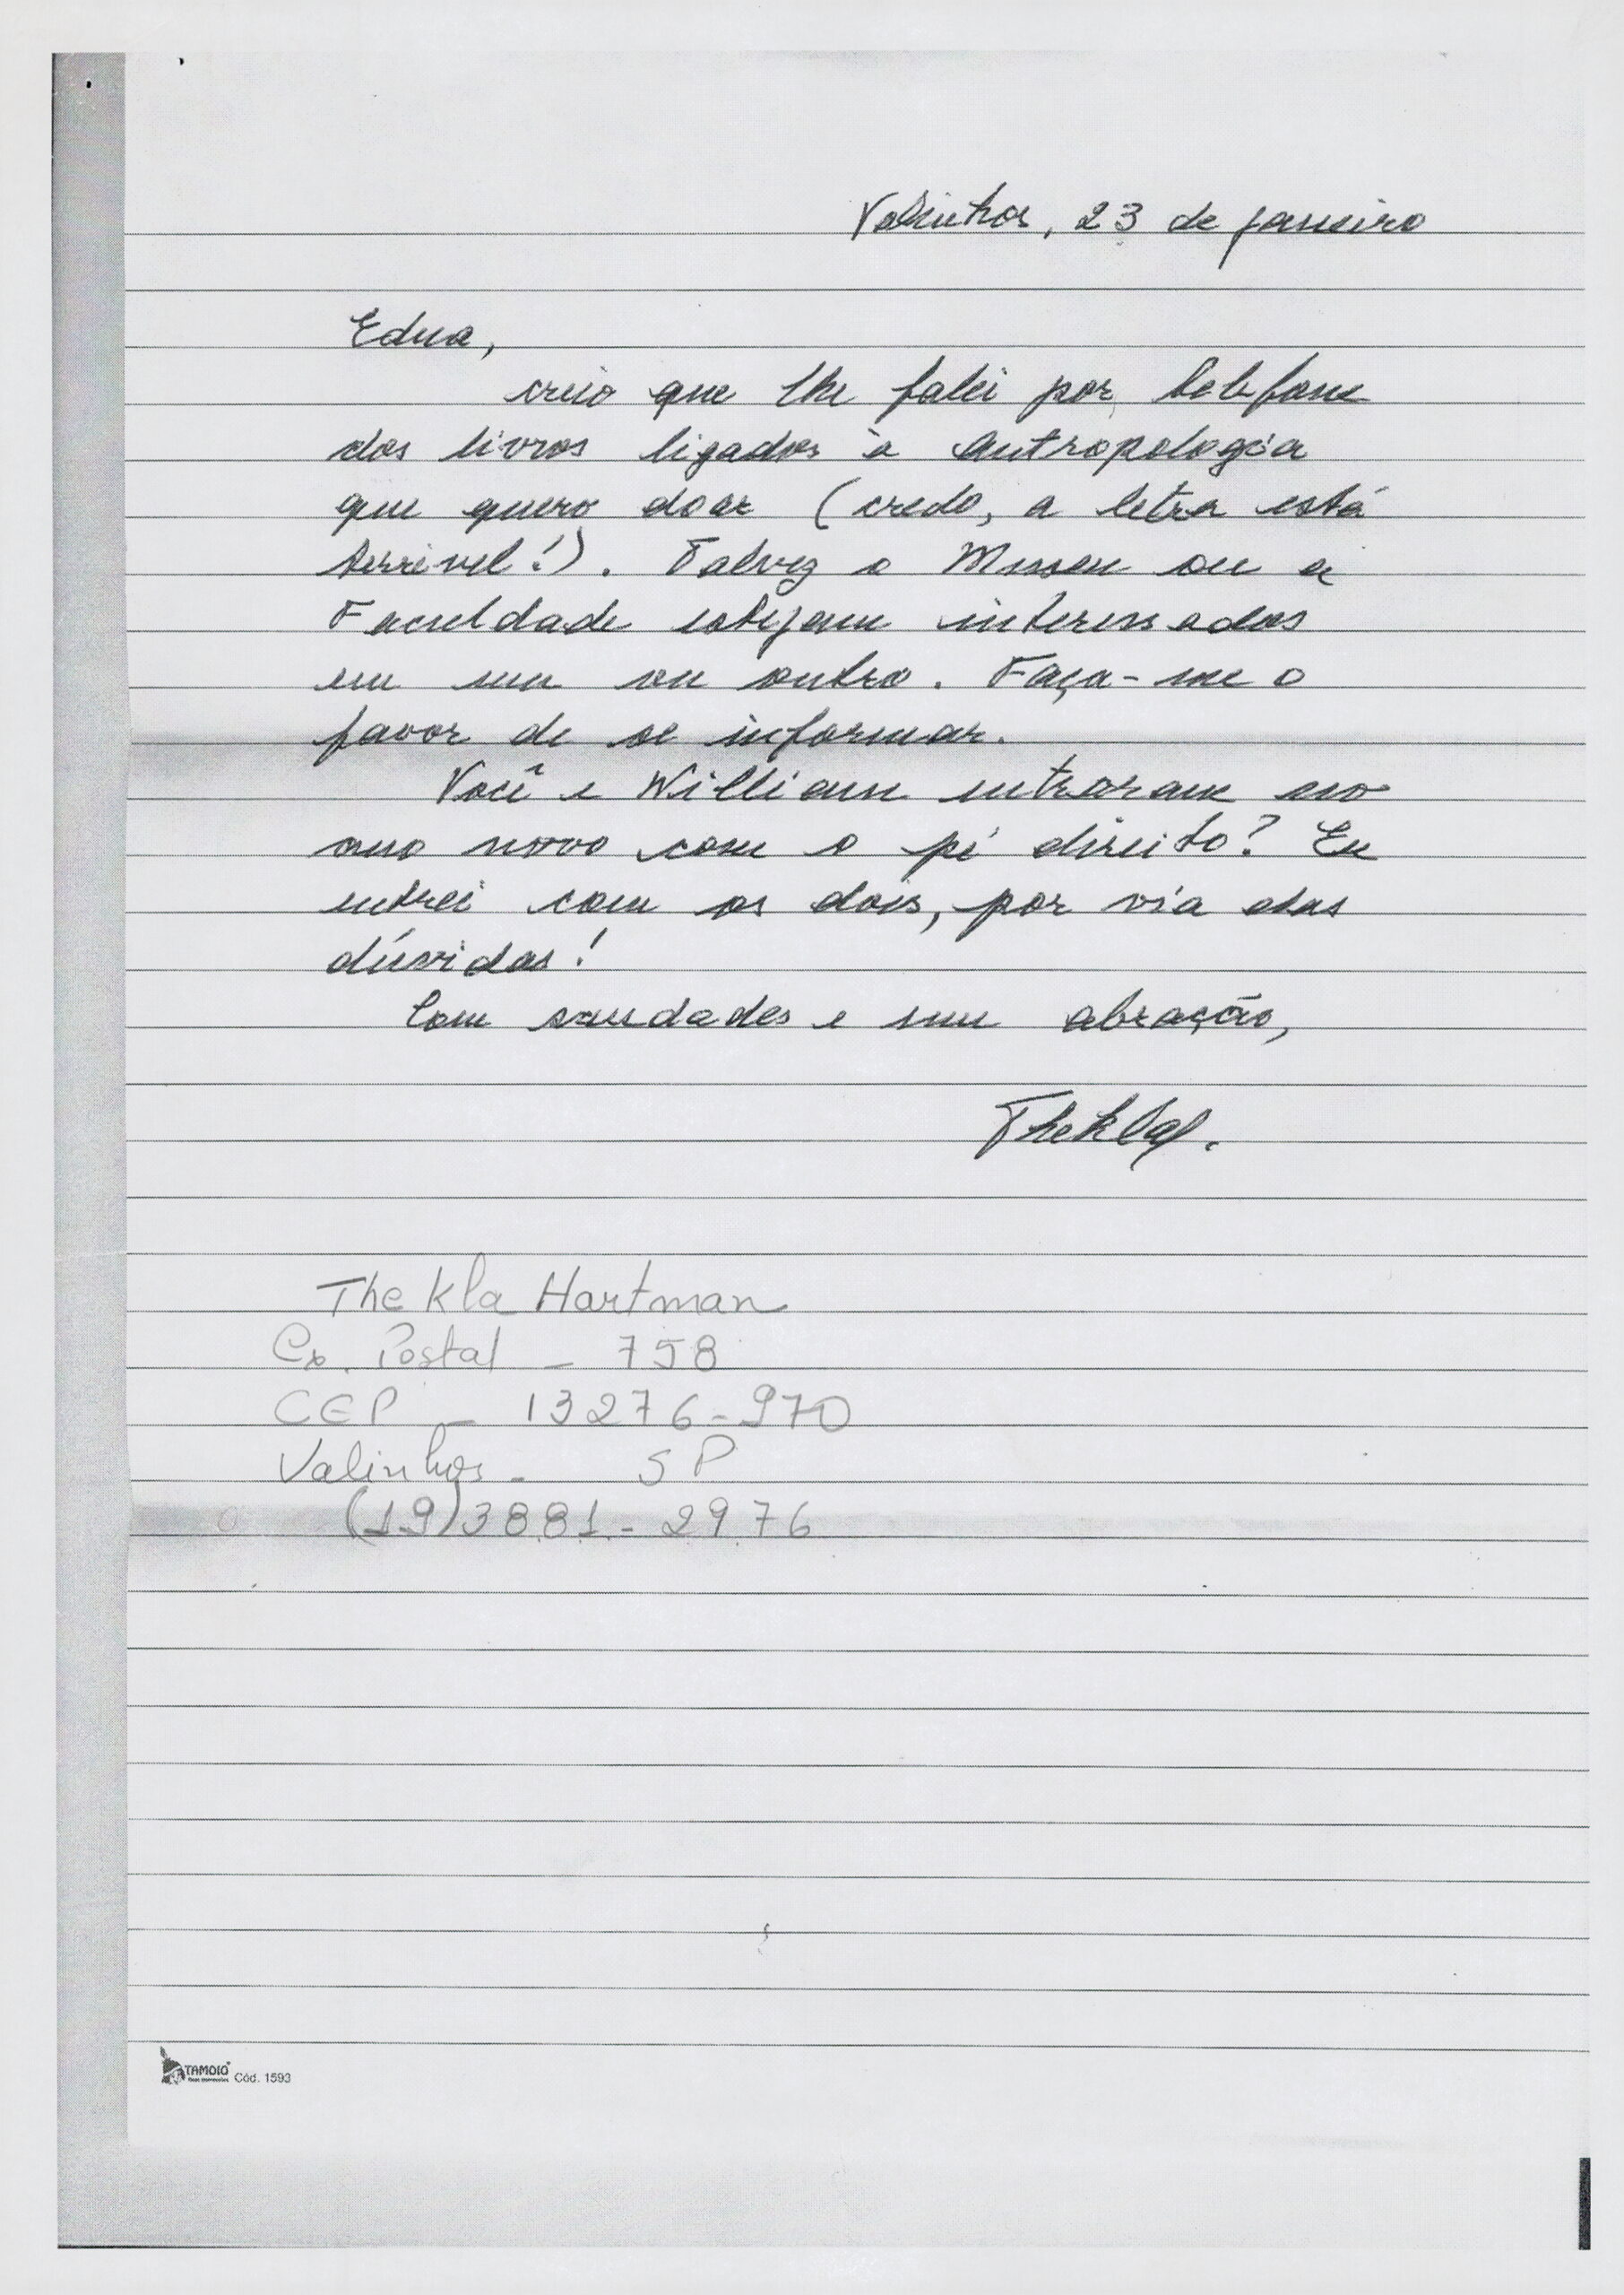 Valinhos, 23 de janeiro
Edna,
creio que lhe falei por telefone
dos livros ligados à Antropologia
que quero doar (credo, a letra está
terrível!). Talvez o Museu ou a
Faculdade estejam interessados
em um ou outro. Faça-me o
favor de se informar.
Você e William entraram no
ano novo com o pé direito? Eu
entrei com os dois, por via das
dúvidas!
Com saudades e um abração,
Thekla.
Thekla Hartman
Cx. Postal - 758
CEP - 13276-970
Valinhos - SP
(19)3881-2976
TAMOIO Cód. 1593